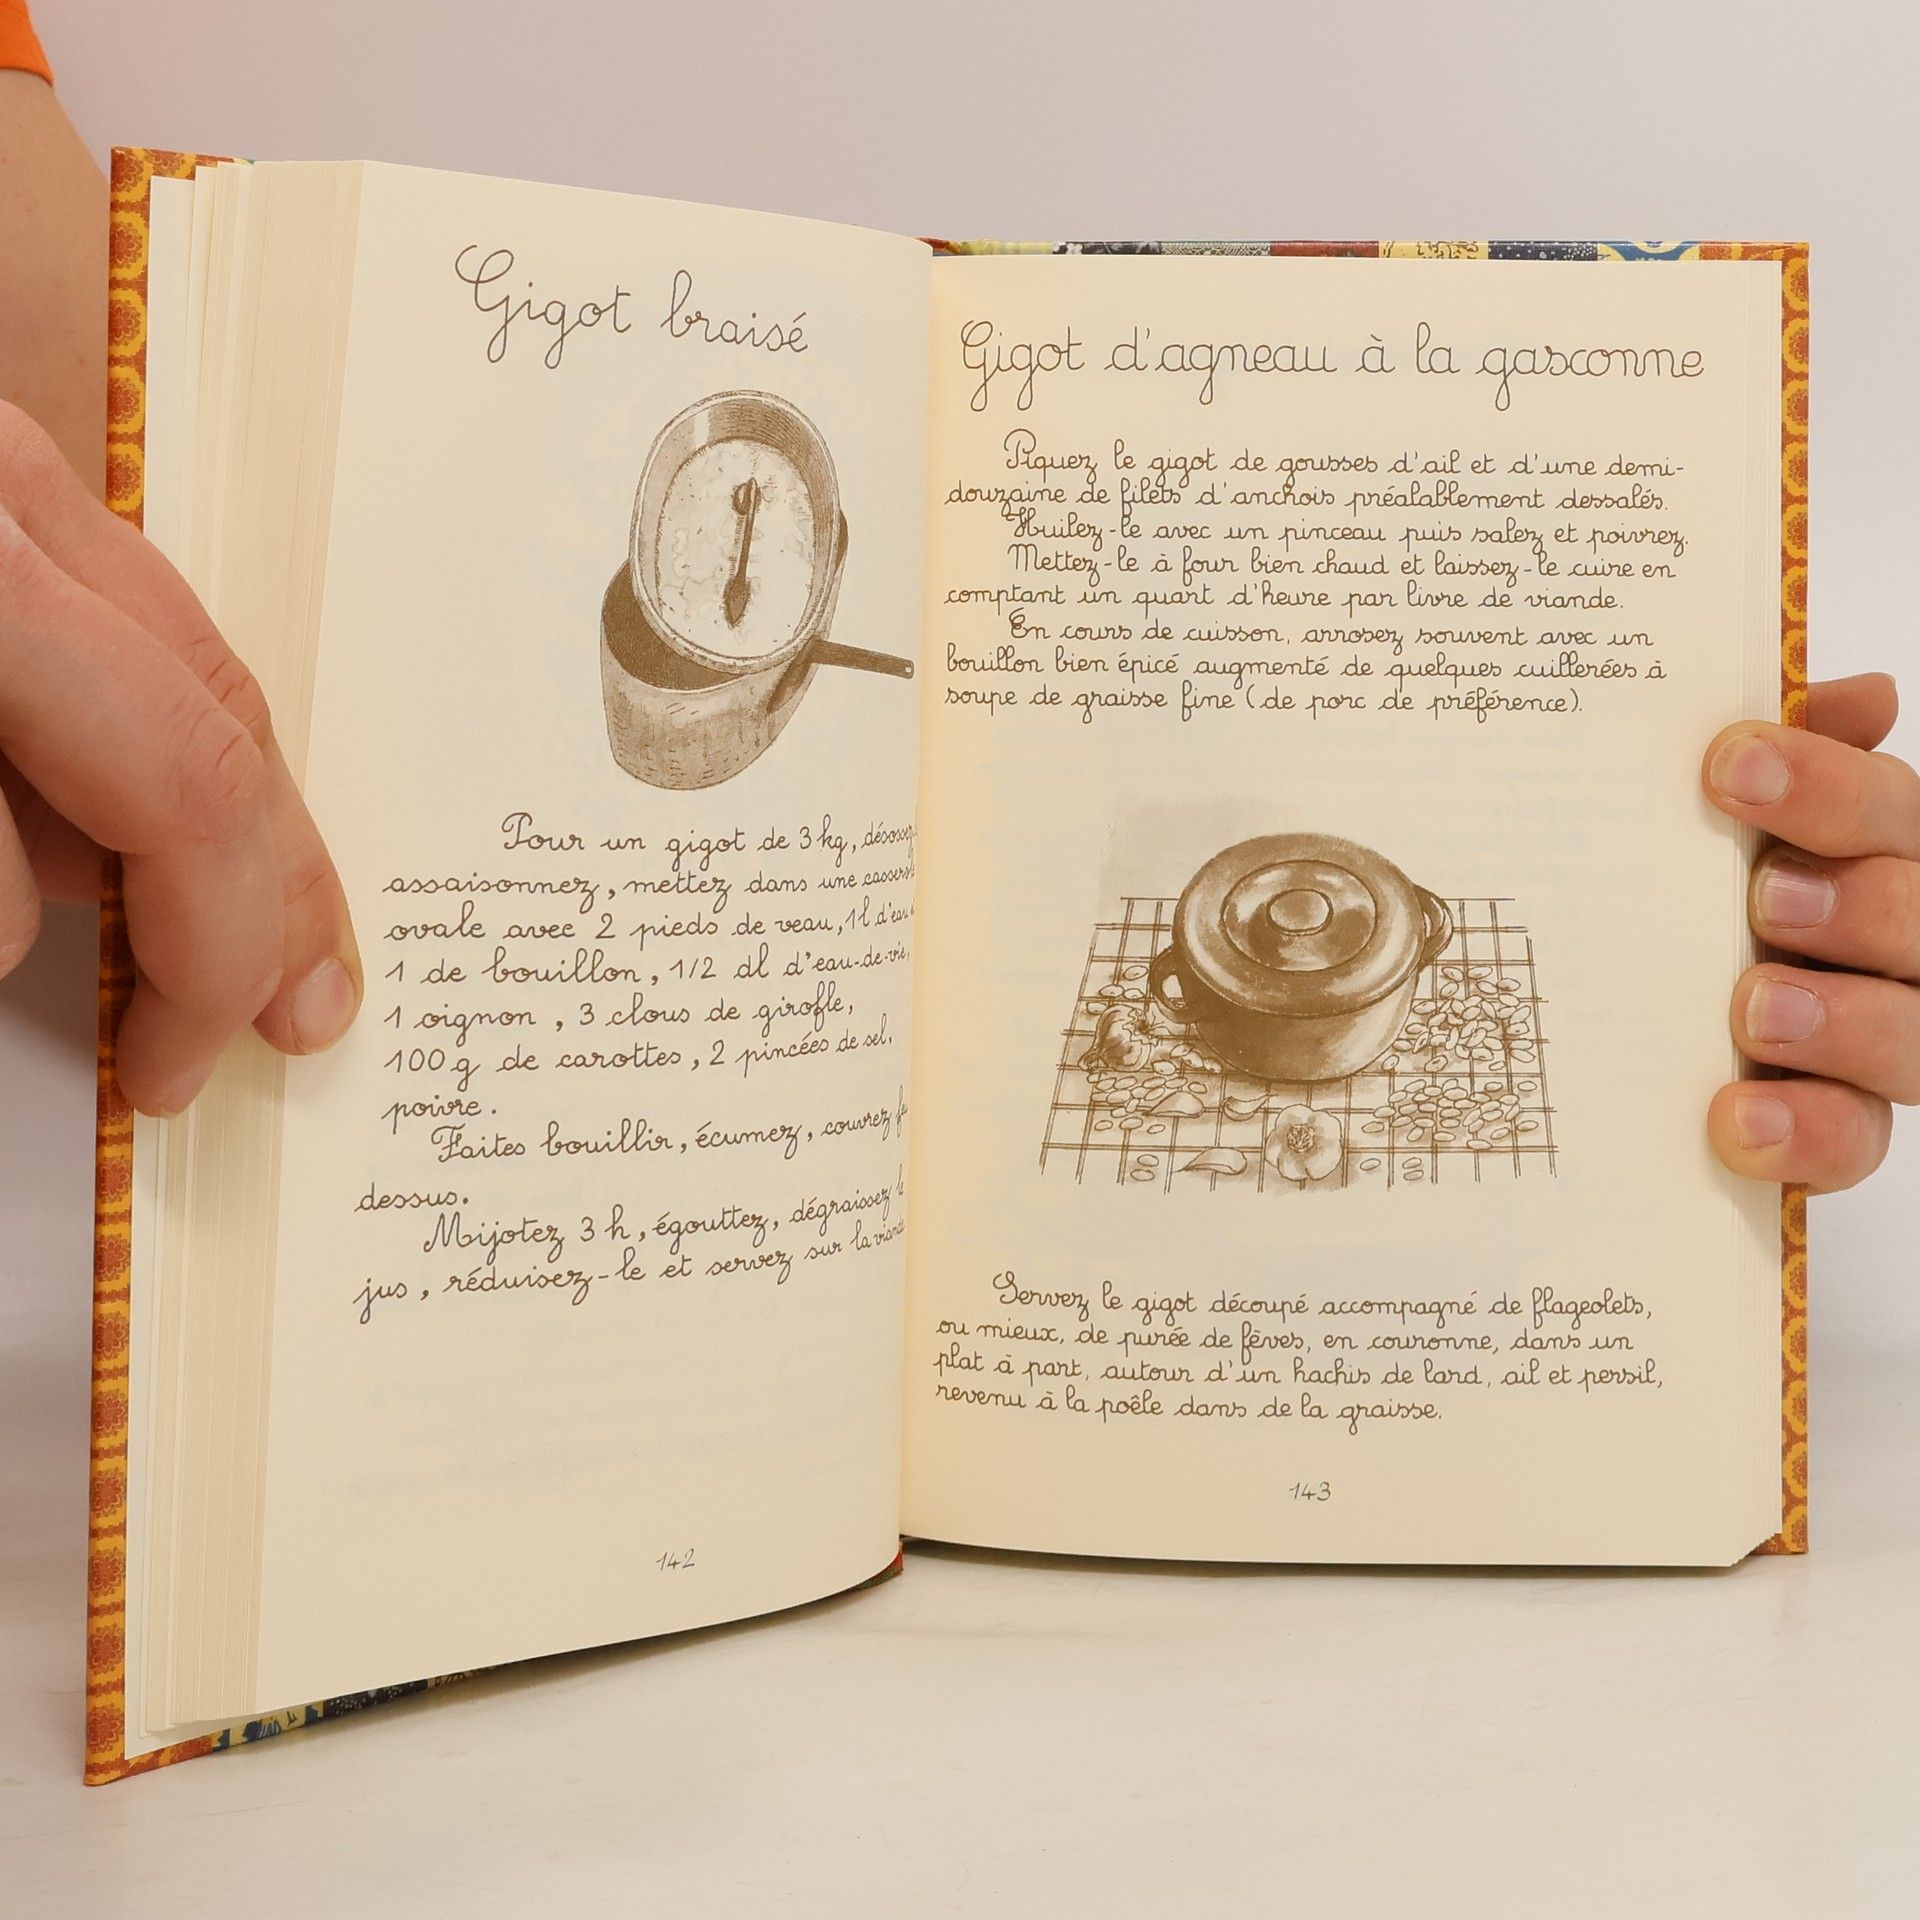 Gigot braisé
Pour un gigot de 3 kg, désossez,
assaisonnez, mettez dans une
ovale avec 2 pieds de veau, 1 l d'eau
1 de bouillon, 1/2 dl d'eau-de-vie,
1 oignon, 3 clous de girofle,
100 g de carottes, 2 pincées de sel,
poivre.
Faites bouillir, écumez, couvrez
dessus.
Mijotez 3 h, égouttez, dégraissez le
jus, réduisez-le et servez sur la viande
142
Gigot d'agneau à la gasconne
Piquez le gigot de gousses d'ail et d'une demi-
douzaine de filets d'anchois préalablement dessalés.
Huilez-le avec un pinceau puis salez et poivrez.
Mettez-le à four bien chaud et laissez-le cuire en
comptant un quart d'heure par livre de viande.
En cours de cuisson, arrosez souvent avec un
bouillon bien épicé augmenté de quelques cuillerées à
soupe de graisse fine (de porc de préférence).
Servez le gigot découpé accompagné de flageolets,
ou mieux, de purée de fèves, en couronne, dans un
plat à part, autour d'un hachis de lard, ail et persil,
revenu à la poêle dans de la graisse.
143